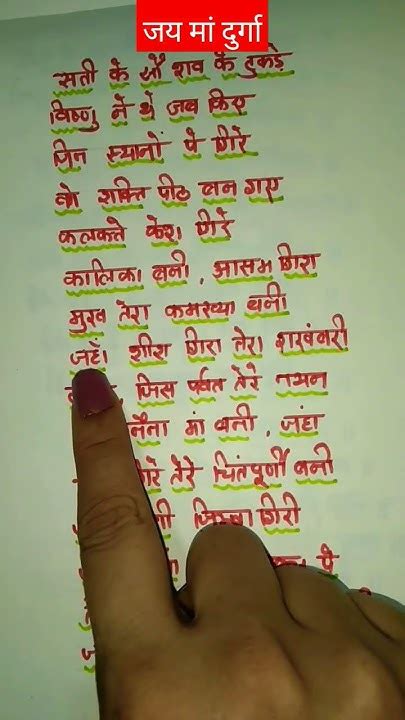 जय मां दुर्गा
सती के सौ शव के टुकड़े
विष्णु ने थे जब किए
जिन स्थानों पे गिरे
वो शक्ति पीठ बन गए
कलकत्ते केश गिरे
कालिका बनी, आसाम गिरा
मुख तेरा कमख्या बनी
जहाँ शीश गिरा तेरा शाखंबरी
जिस पर्वत तेरे नयन
नैना मां बनी, जंहा
गिरे तेरे चिंतपूर्णी बनी
जिह्वा गिरी
पे